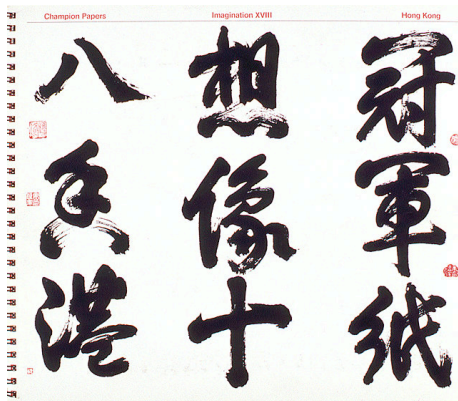 Champion Papers Imagination XVIII Hong Kong
冠軍紙
想像十
八香港